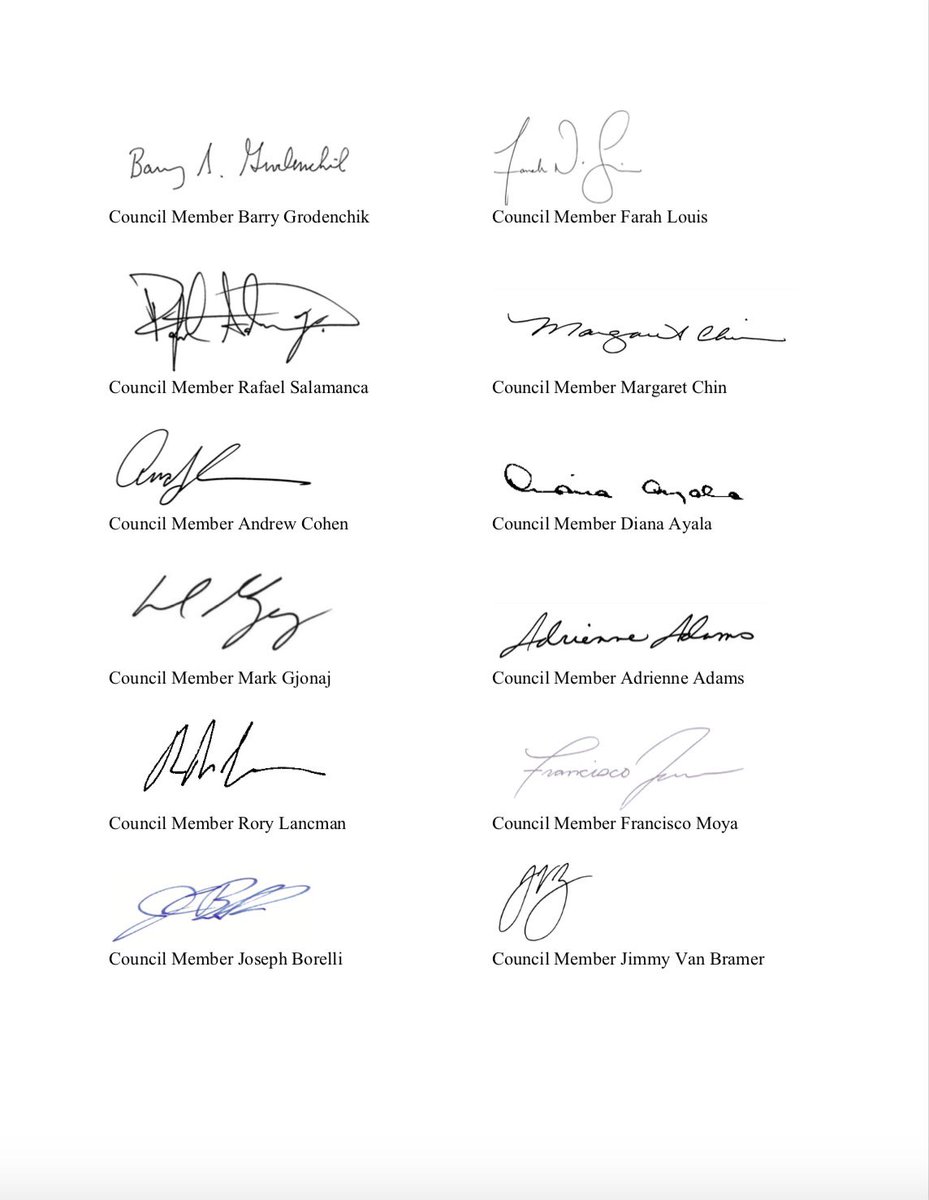 Barry S. Grodenchik
Council Member Barry Grodenchik
Farah N. L
Council Member Farah Louis
Council Member Rafael Salamanca
Margaret Chin
Council Member Margaret Chin
Council Member Andrew Cohen
Diana Ayala
Council Member Diana Ayala
Council Member Mark Gjonaj
Adrienne Adams
Council Member Adrienne Adams
Council Member Rory Lancman
Francisco
Council Member Francisco Moya
Council Member Joseph Borelli
JVB
Council Member Jimmy Van Bramer